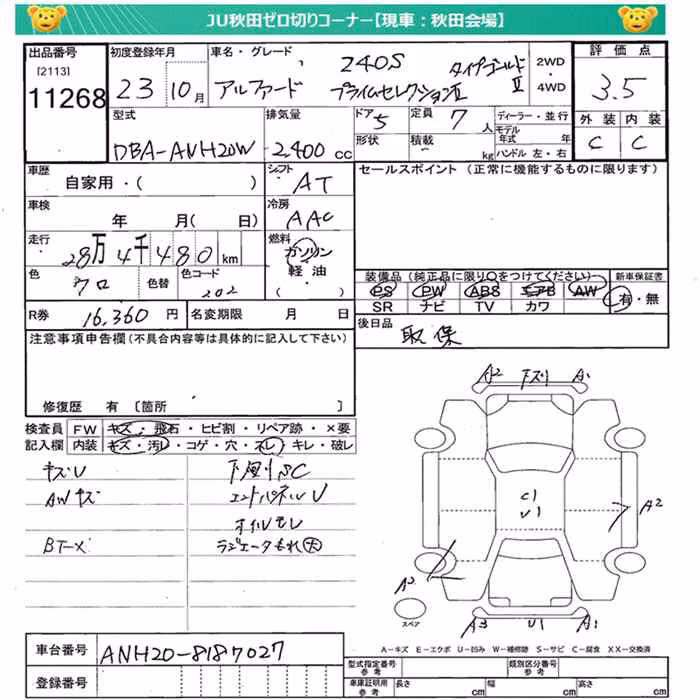 JU秋田ゼロ切りコーナー【現車：秋田会場】
出品番号 初度登録年月 車名・グレード 2WD・4WD 評価点
[2113] 11268
23 10月 アルファード 240S タイプゴールドⅡ
プライムセレクションⅡ
3.5
型式 排気量 ドア 5 定員 7人 ディーラー・並行 外装 内装
DBA-ANH20W 2,400cc 形状 積載 kg モデル年式 年 ハンドル 左・右 C C
車歴 自家用・( ) シフト AT セールスポイント (正常に機能するものに限ります)
車検 年 月( 日) 冷房 AAC
走行 28万4千480km 燃料 ガソリン
軽・油
( )
色 クロ 色替 色コード 202
装備品 (純正品に限り○をつけてください) 新車保証書
PS PW ABS エアB AW 有・無
SR ナビ TV カワ
R券 16,360円 名変期限 月 日 後日品 取保
注意事項申告欄 (不具合内容等は具体的に記入して下さい)
修復歴 有 〔箇所 〕
検査員 FW キズ・飛石・ヒビ割・リペア跡・×要
記入欄 内装 キズ・汚レ・コゲ・穴・スレ・キレ・破レ
キズU 下廻りSC
AWキズ エンドパネルU
オイルモレ
BT-× ラジエータもれ(大)
A2 下スリ A1
C1
U1
A2
A2
スペア
A3 U1 A1
A-キズ E-エクボ U-凹み W-補修跡 S-サビ C-腐食 XX-交換済
車台番号 ANH20-8187027
登録番号
型式指定番号 参考 類別区分番号 参考
車庫証明用 参考 長さ cm 幅 cm 高さ cm